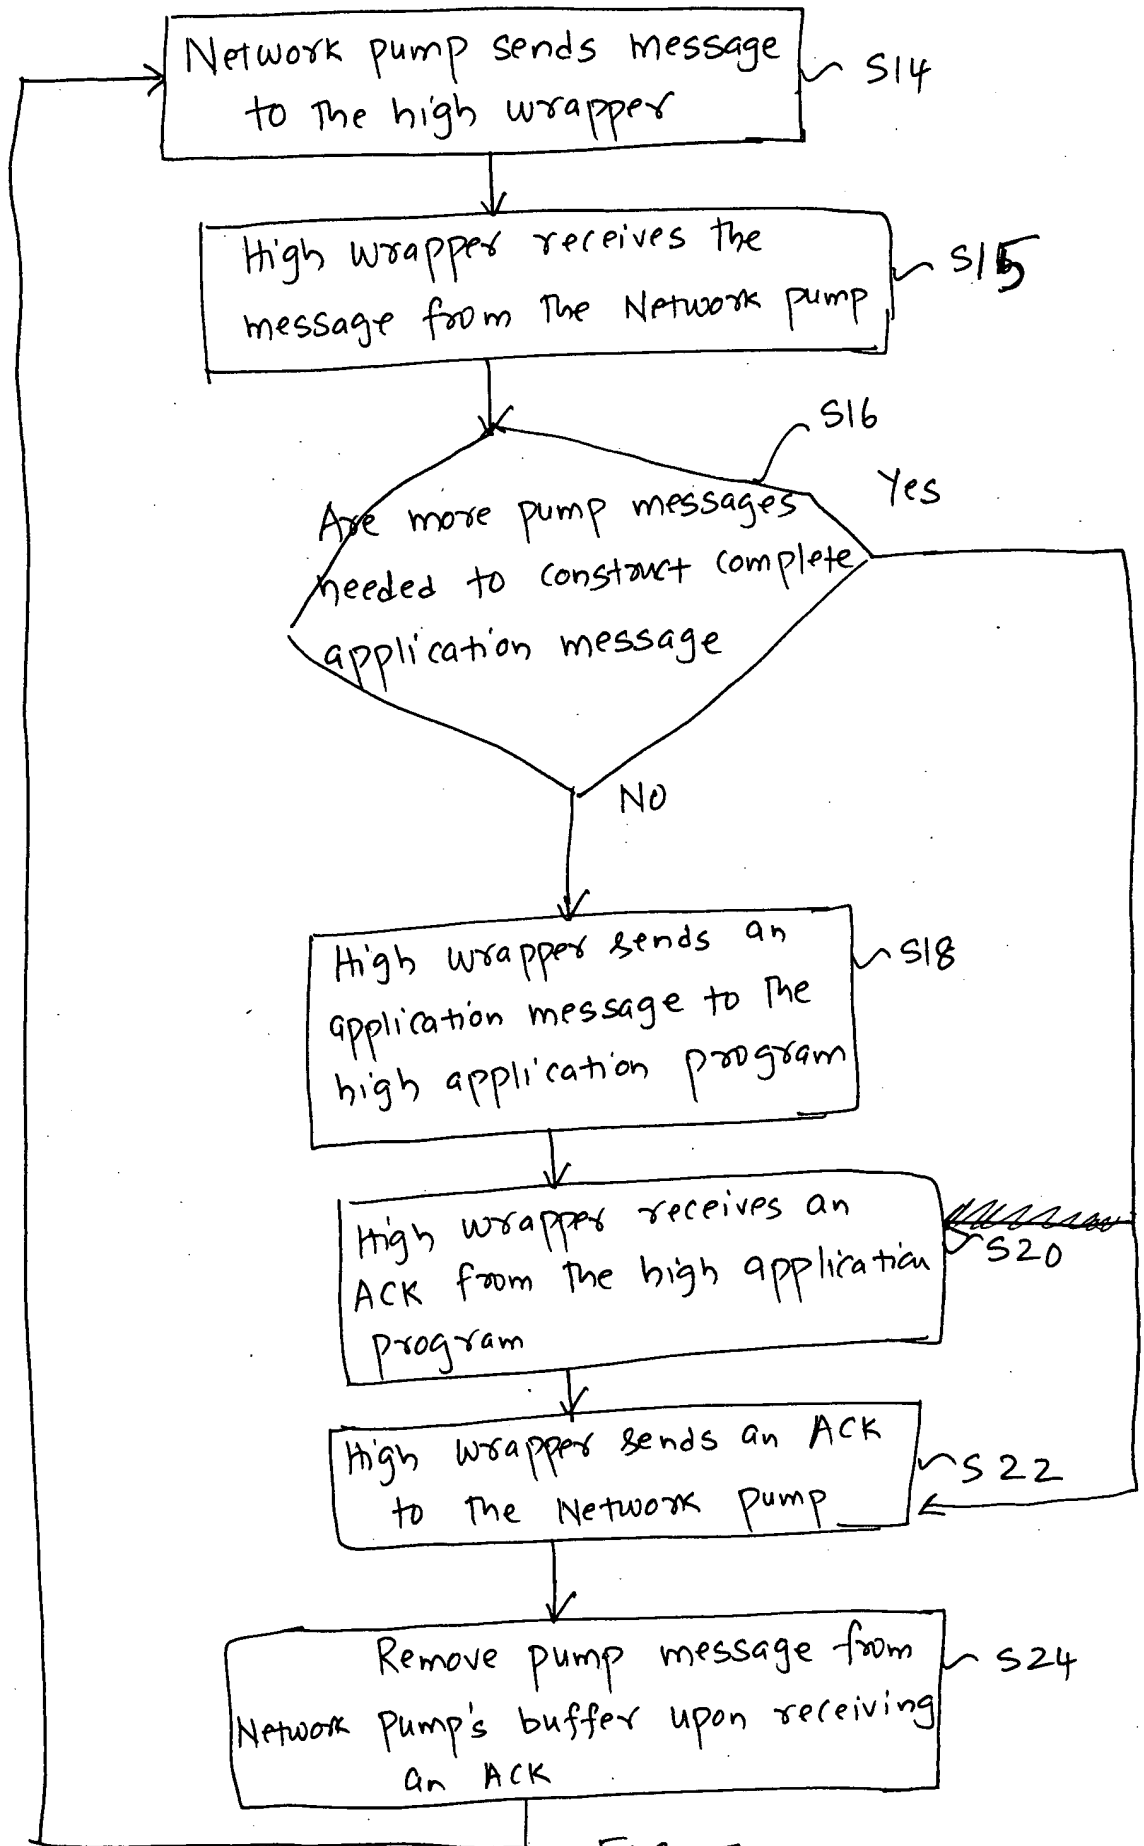 Network pump sends message
to the high wrapper
S14
High wrapper receives the
message from the Network pump
S15
S16
Are more pump messages
needed to construct complete
application message
Yes
NO
High wrapper sends an
application message to the
high application program
S18
High wrapper receives an
ACK from the high application
program
S20
High wrapper sends an ACK
to the Network pump
S22
Remove pump message from
Network pump's buffer upon receiving
an ACK
S24